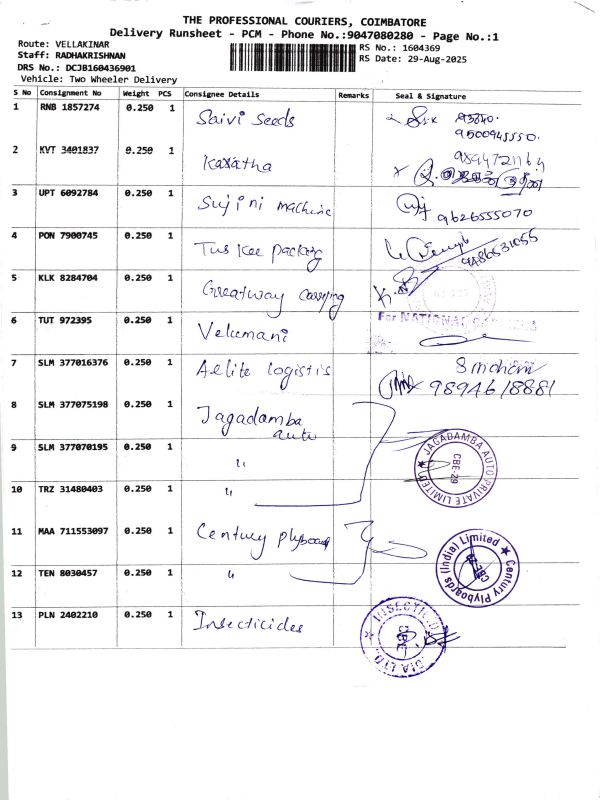 THE PROFESSIONAL COURIERS, COIMBATORE
Delivery Runsheet - PCM - Phone No.:9047080280 - Page No.:1
Route: VELLAKINAR
Staff: RADHAKRISHNAN
DRS No.: DCJB160436901
Vehicle: Two Wheeler Delivery
RS No.: 1604369
RS Date: 29-Aug-2025
S No Consignment No Weight PCS Consignee Details Remarks Seal & Signature
1 RNB 1857274 0.250 1 Saivi Seeds
2 KVT 3401837 0.250 1 Karatha
3 UPT 6092784 0.250 1 Sujini machine 9626555070
4 PON 7900745 0.250 1 Tuskee packing
5 KLK 8284704 0.250 1 Greatway
6 TUT 972395 0.250 1 Velumani
For NATIONAL
7 SLM 377016376 0.250 1 Aelite logistis
9894618881
8 SLM 377075198 0.250 1 Jagadamba
auto
9 SLM 377070195 0.250 1 "
JAGADAMBA AUTO PRIVATE LIMITED
CBE-29
10 TRZ 31480403 0.250 1 "
11 MAA 711553097 0.250 1 Century plyboard
12 TEN 8030457 0.250 1 "
Century Plyboards (India) Limited
13 PLN 2402210 0.250 1 Insecticides